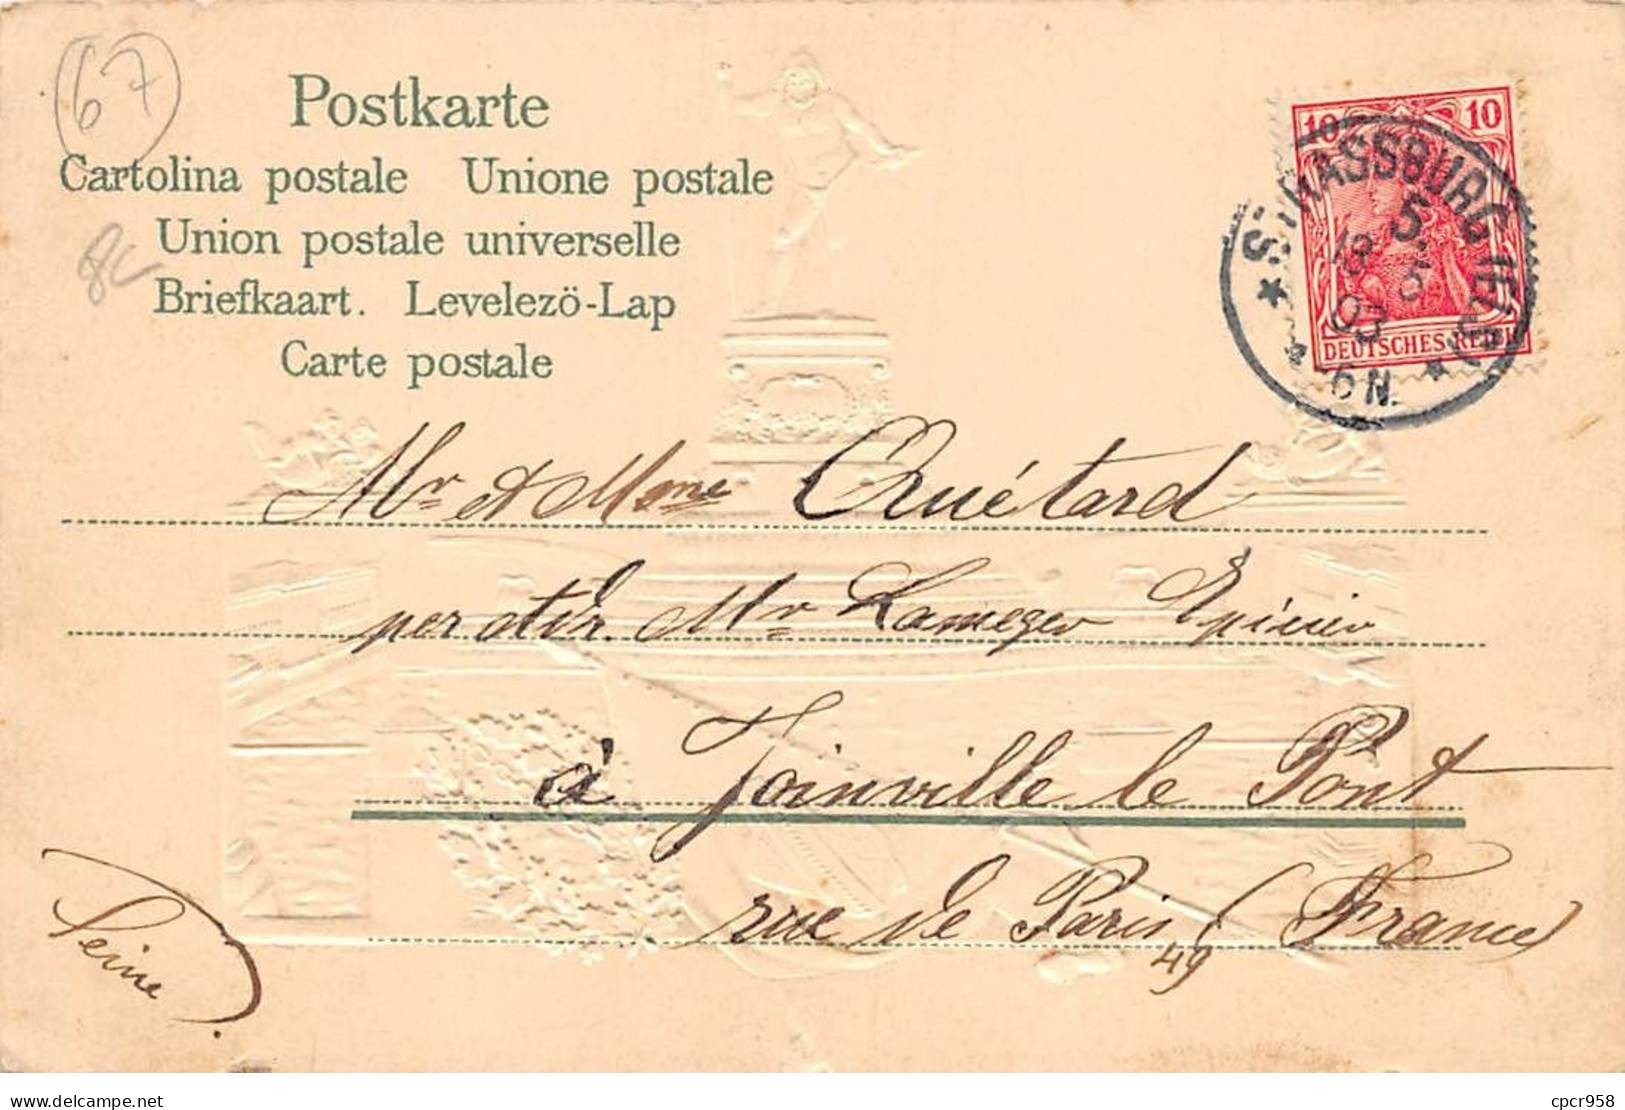 67
Postkarte
Cartolina postale Unione postale
Union postale universelle
Briefkaart. Levelezö-Lap
Carte postale
10 10
DEUTSCHES REICH
STRASSBURG
5
03
6 N.
Mr et Mme Quétard
Mr Lameger Epicier
à Joinville le Pont
rue de Paris 49 (France)
Seine
www.delcampe.net
cpcr958